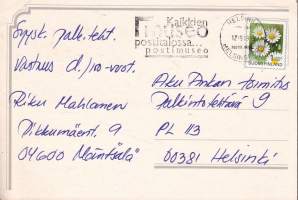 Syysk. palk.teht.
Vastaus d./
Riku Mahlanen
Pikkumäent. 9
04600 Mäntsälä
Kaikkien
museo
postitalossa...
postimuseo
HELSINKI
SUOMI FINLAND
Aku Ankan toimitus
Palkintotehtävä 9
PL 113
00381 Helsinki